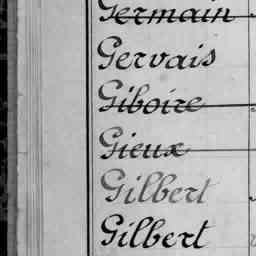 Germain
Gervais
Giboire
Gieux
Gilbert
Gilbert